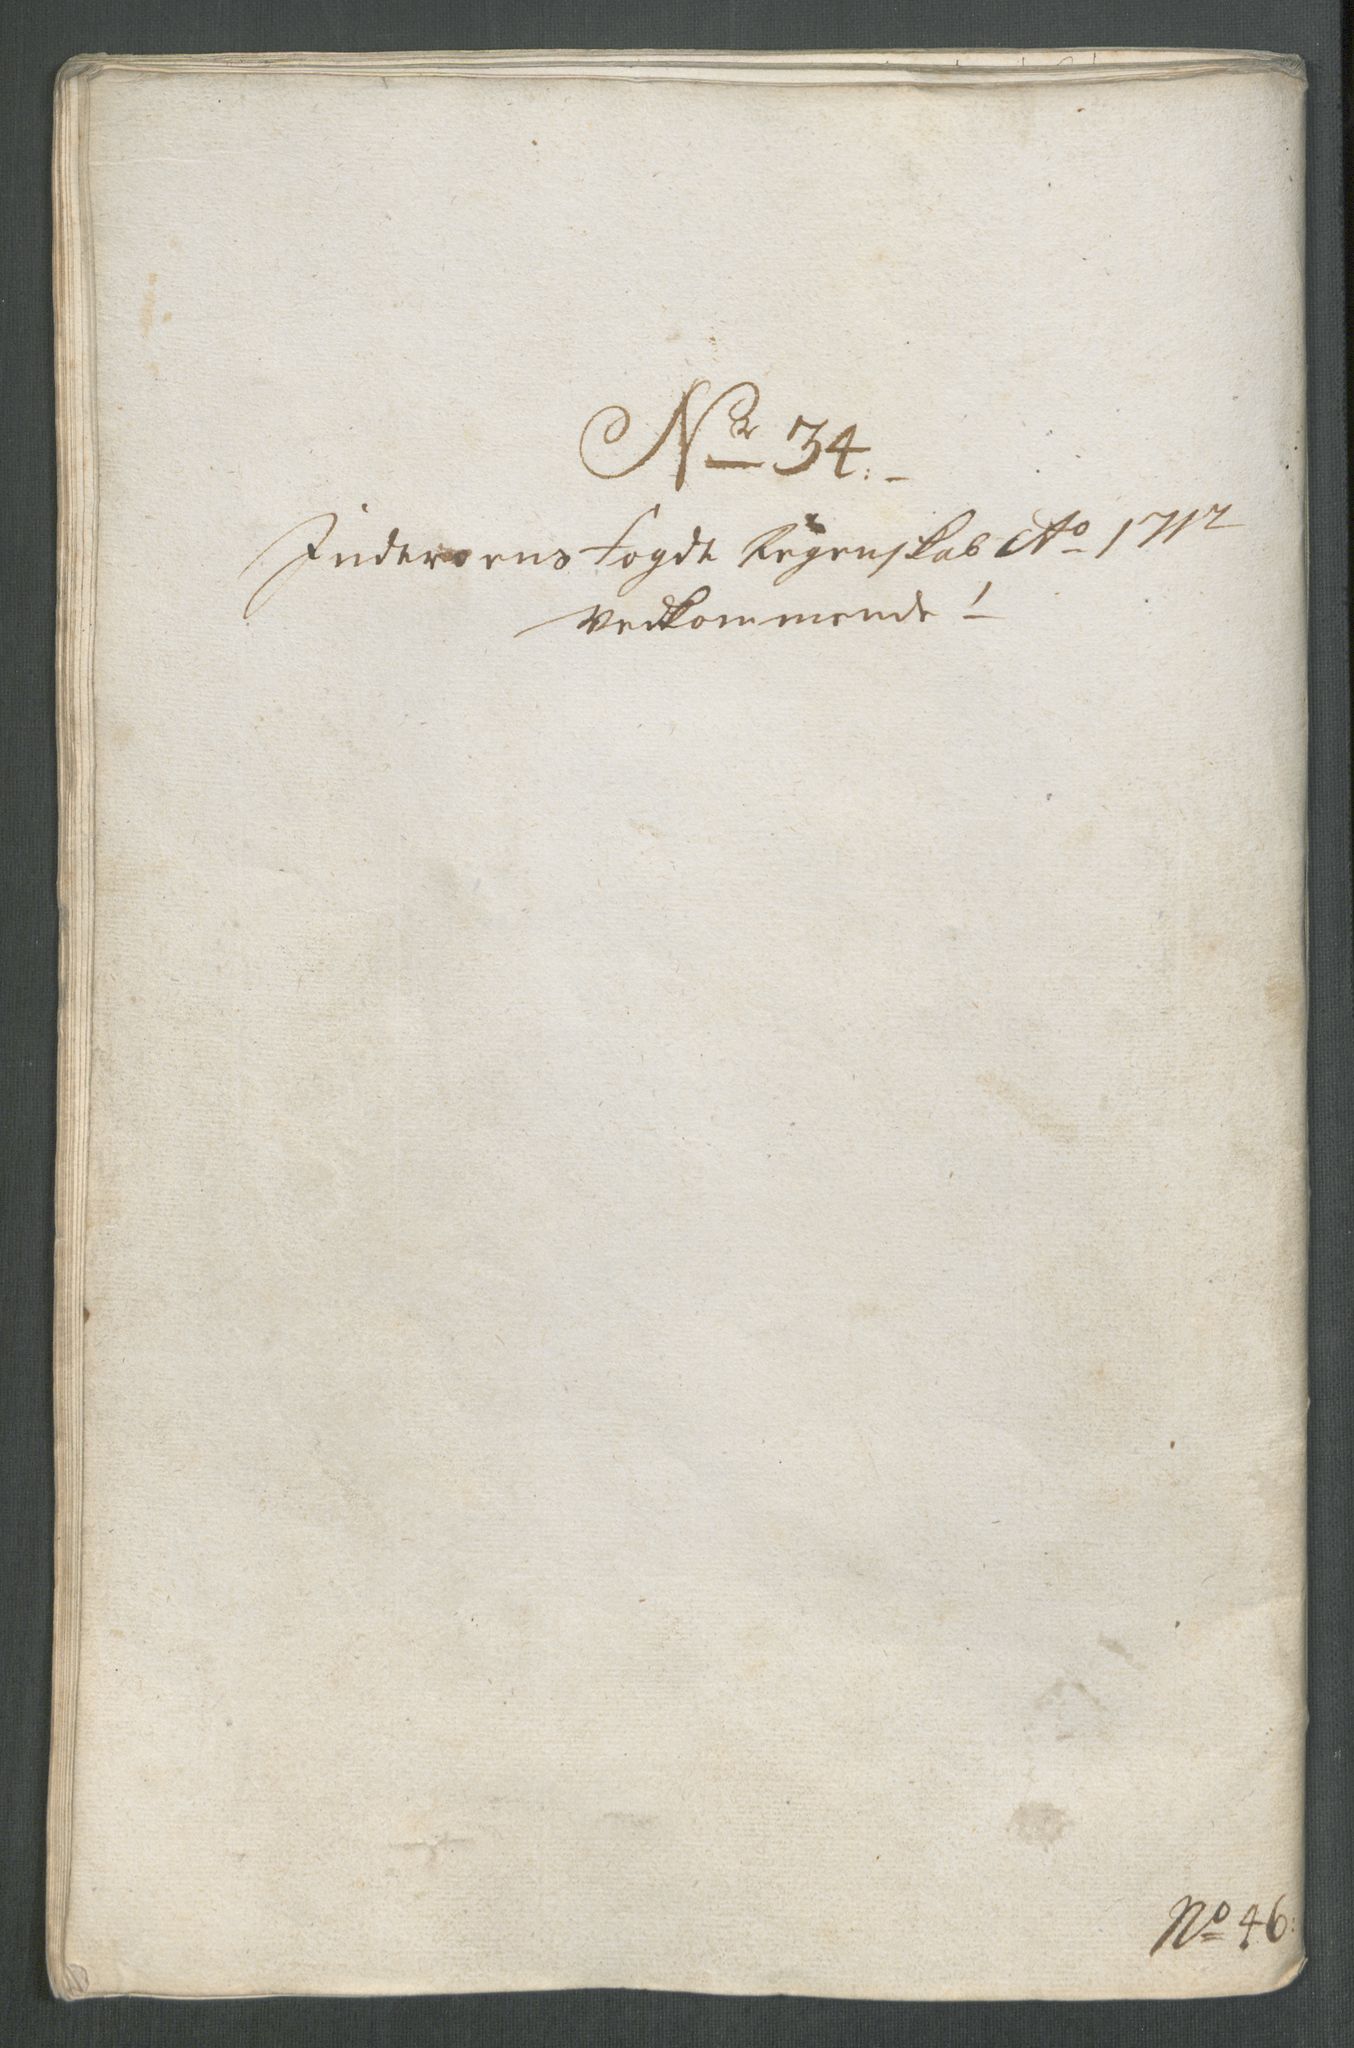 Nr 34.
Inderoens fogde Regenskab Ao 1712
vedkommende
No 46: